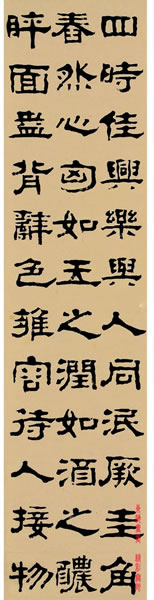 四時佳興樂與人同泯厥圭角
春然心匈如玉之潤如酒之醲
睟面盎背辭色雍容待人接物